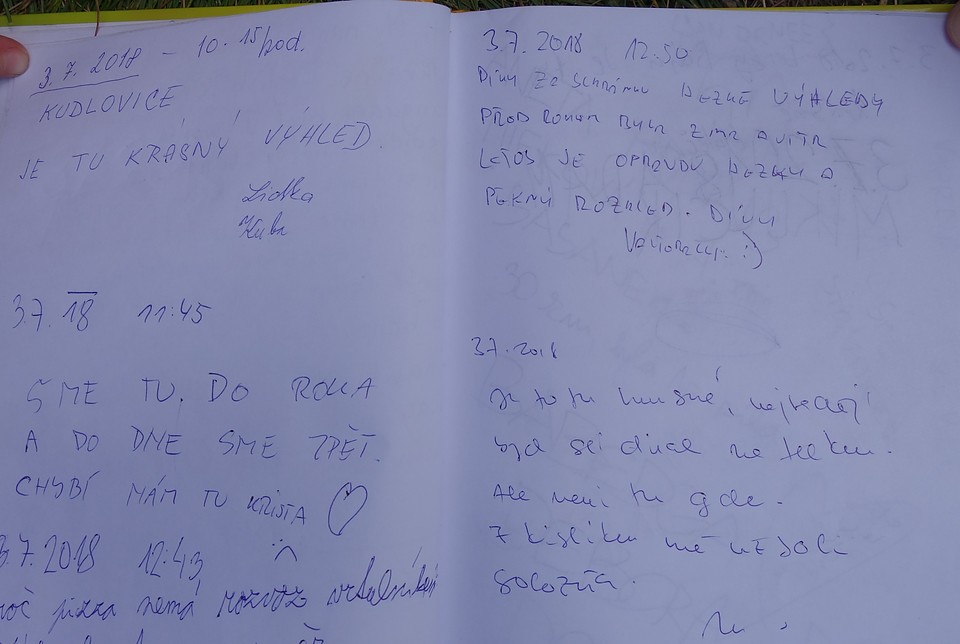 3.7. 2018 – 10.15 hod.
KUDLOVICE
JE TU KRÁSNÝ VÝHLED.
Lidka
Kuba
3.7. 18 11:45
SME TU. DO ROKA
A DO DNE SME ZPĚT.
CHYBÍ NÁM TU KRISTA
3.7.2018 12:43
pizza nemá rozvoz vrtulníkem
3.7. 2018 12:50
DÍKY ZA SCHRÁNKU HEZKÉ VÝHLEDY
PŘED ROKEM BYLA ZIMA A VÍTR
LETOS JE OPRAVDU HEZKY A
PĚKNÝ ROZHLED. DÍKY
:)
3.7.2018
Je to tu hnusné, nejradši
bych sei díval na telku.
Ale není tu gde.
Z kislíku mě už bolí